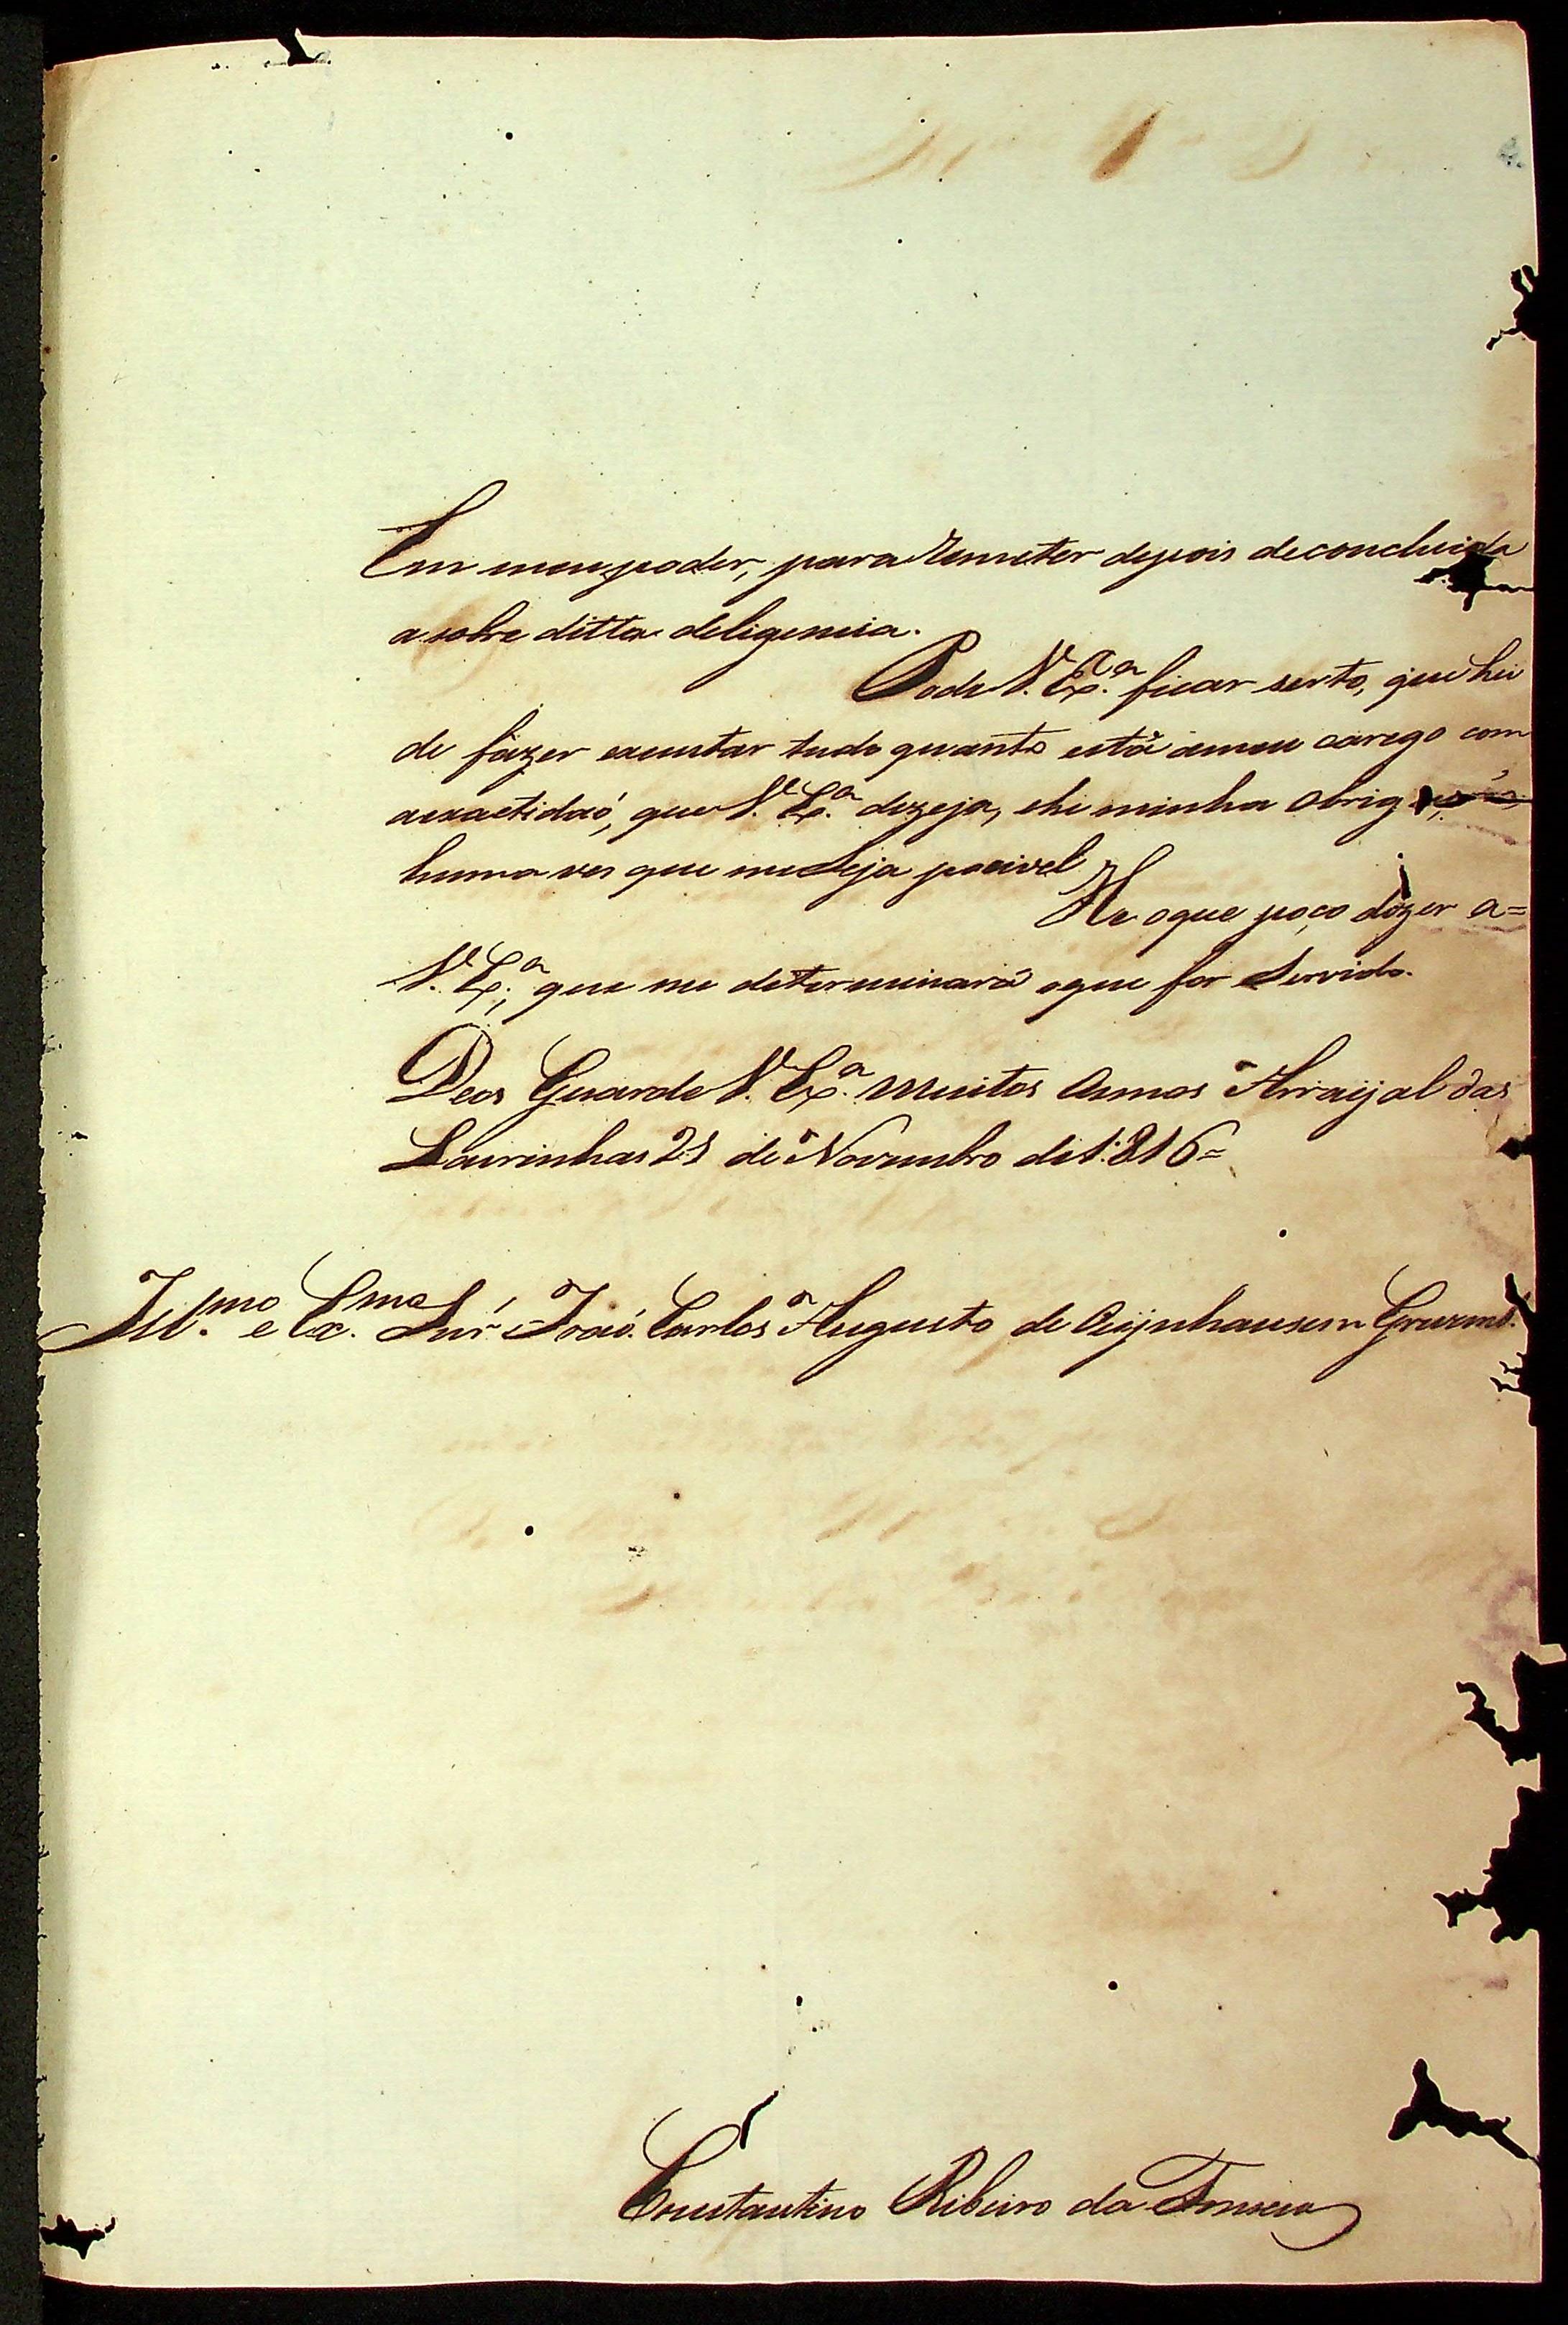 Em meu poder, para Remeter depois de concluida
a sobre ditta deligencia.
Pode V. Ex.ª ficar serto, que hei
de fazer executar tudo quanto está ameu carego com
aexactidaõ, que V. Ex.ª dezeja, ehe minha obrig
huma ves que me Seja pocivel
He oque poço dizer a=
V. Ex.ª, que me determinará oque for Servido.
Deos Guarde V. Ex.ª muitos Annos Arraÿal das
Lavrinhas 21 de Novembro de 1:816=
Ill.mo e Ex.mo Snr' Joaõ Carlos Augusto de Oeÿnhausem
Constantino Ribeiro da Fonseca